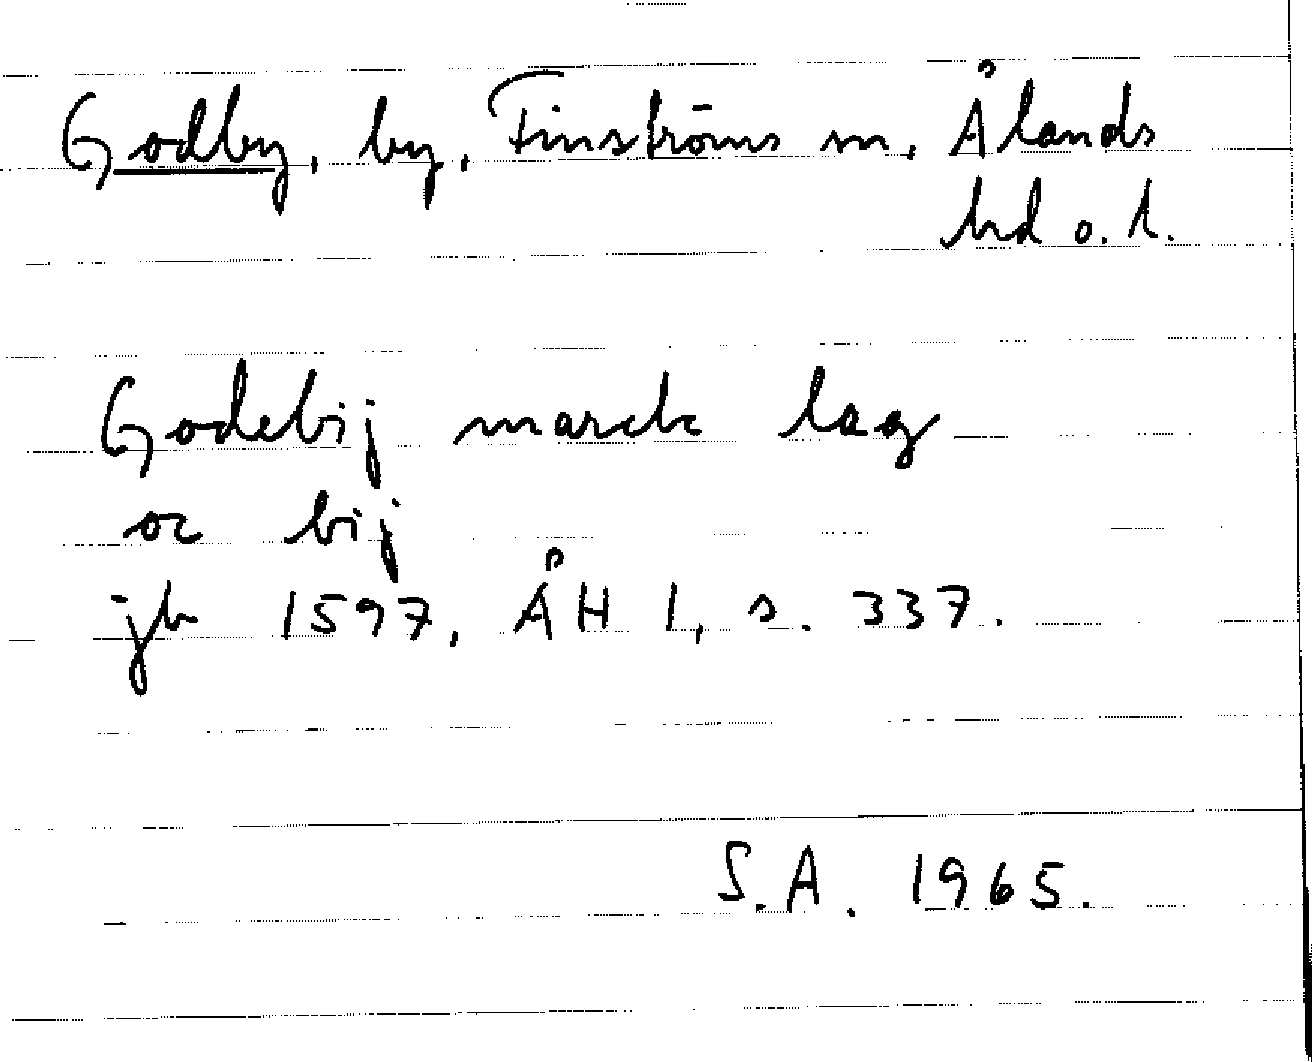 Godby, by, Finströms sn, Ålands
hd o. l.
Godebij marck lag
oc bij
jb 1597, ÅH 1, s. 337.
S.A. 1965.